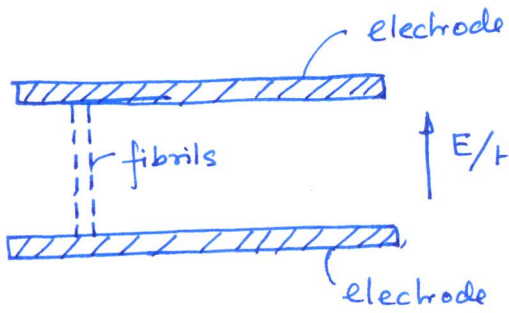 electrode
fibrils
electrode